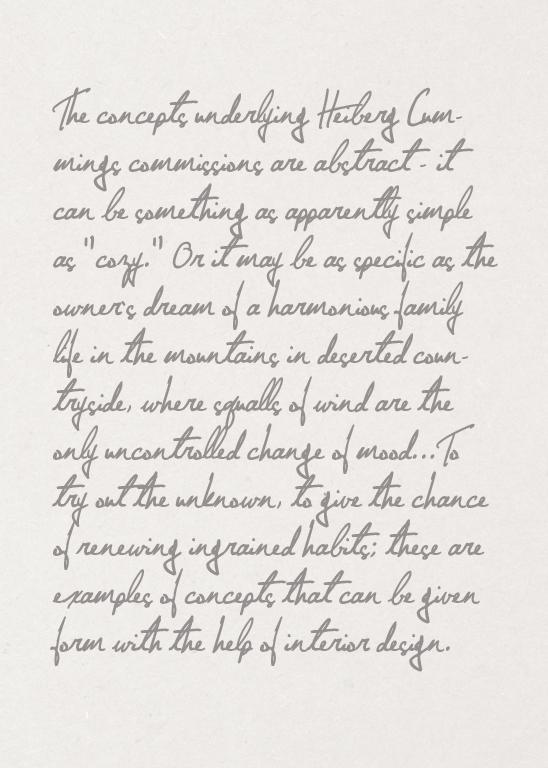 The concepts underlying Heiberg Cum-
mings commissions are abstract - it
can be something as apparently simple
as "cozy." Or it may be as specific as the
owner's dream of a harmonious family
life in the mountains in deserted coun-
tryside, where squalls of wind are the
only uncontrolled change of mood...To
try out the unknown, to give the chance
of renewing ingrained habits; these are
examples of concepts that can be given
form with the help of interior design.